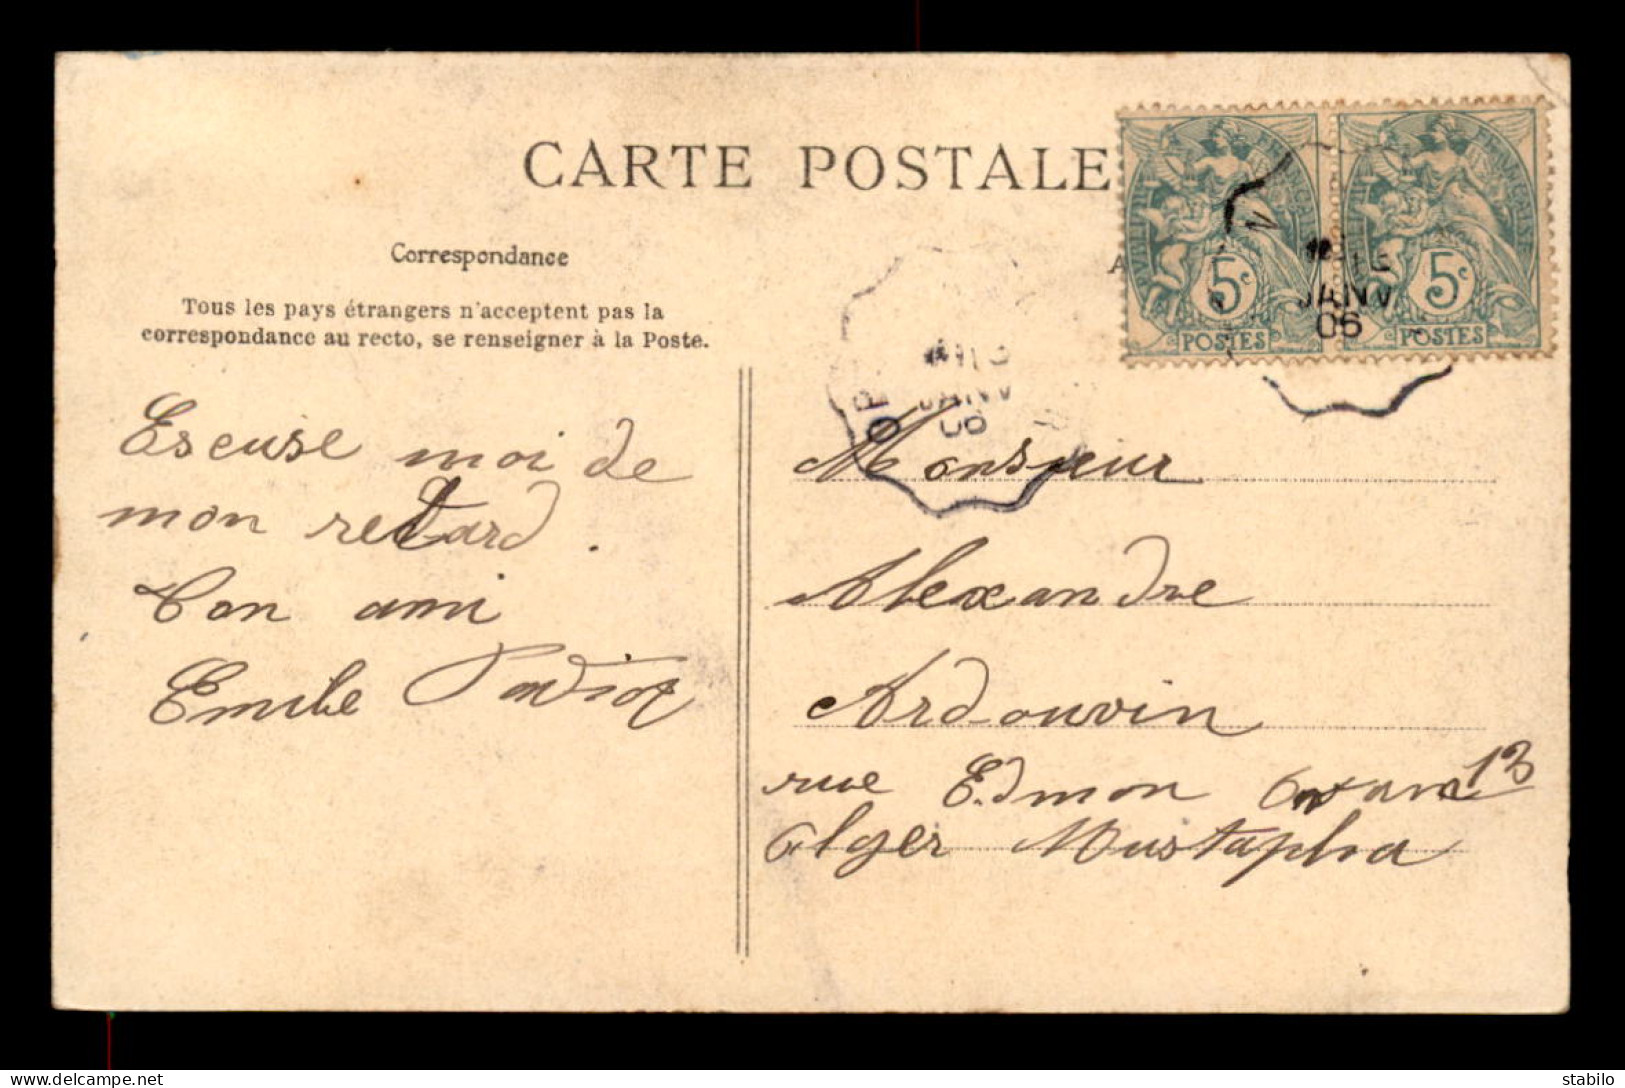 CARTE POSTALE
Correspondance
Tous les pays étrangers n'acceptent pas la
correspondance au recto, se renseigner à la Poste.
5c
POSTES
JANV
06
5c
POSTES
JANV
06
Escuse moi de
mon retard.
Ton ami
Emile
Monsieur
Alexandre
Ardouvin
rue Edmon 13
Alger Mustapha
stabilo